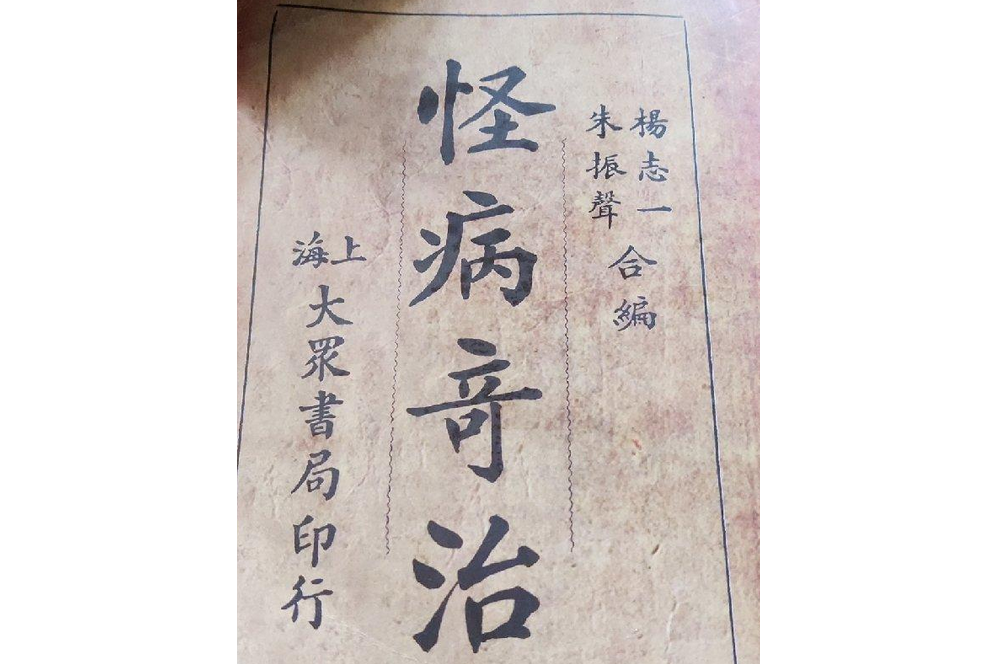 楊志一
朱振聲
合編
怪病竒治
上海
大眾書局印行